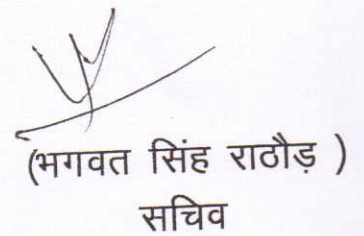 (भगवत सिंह राठौड़ )
सचिव